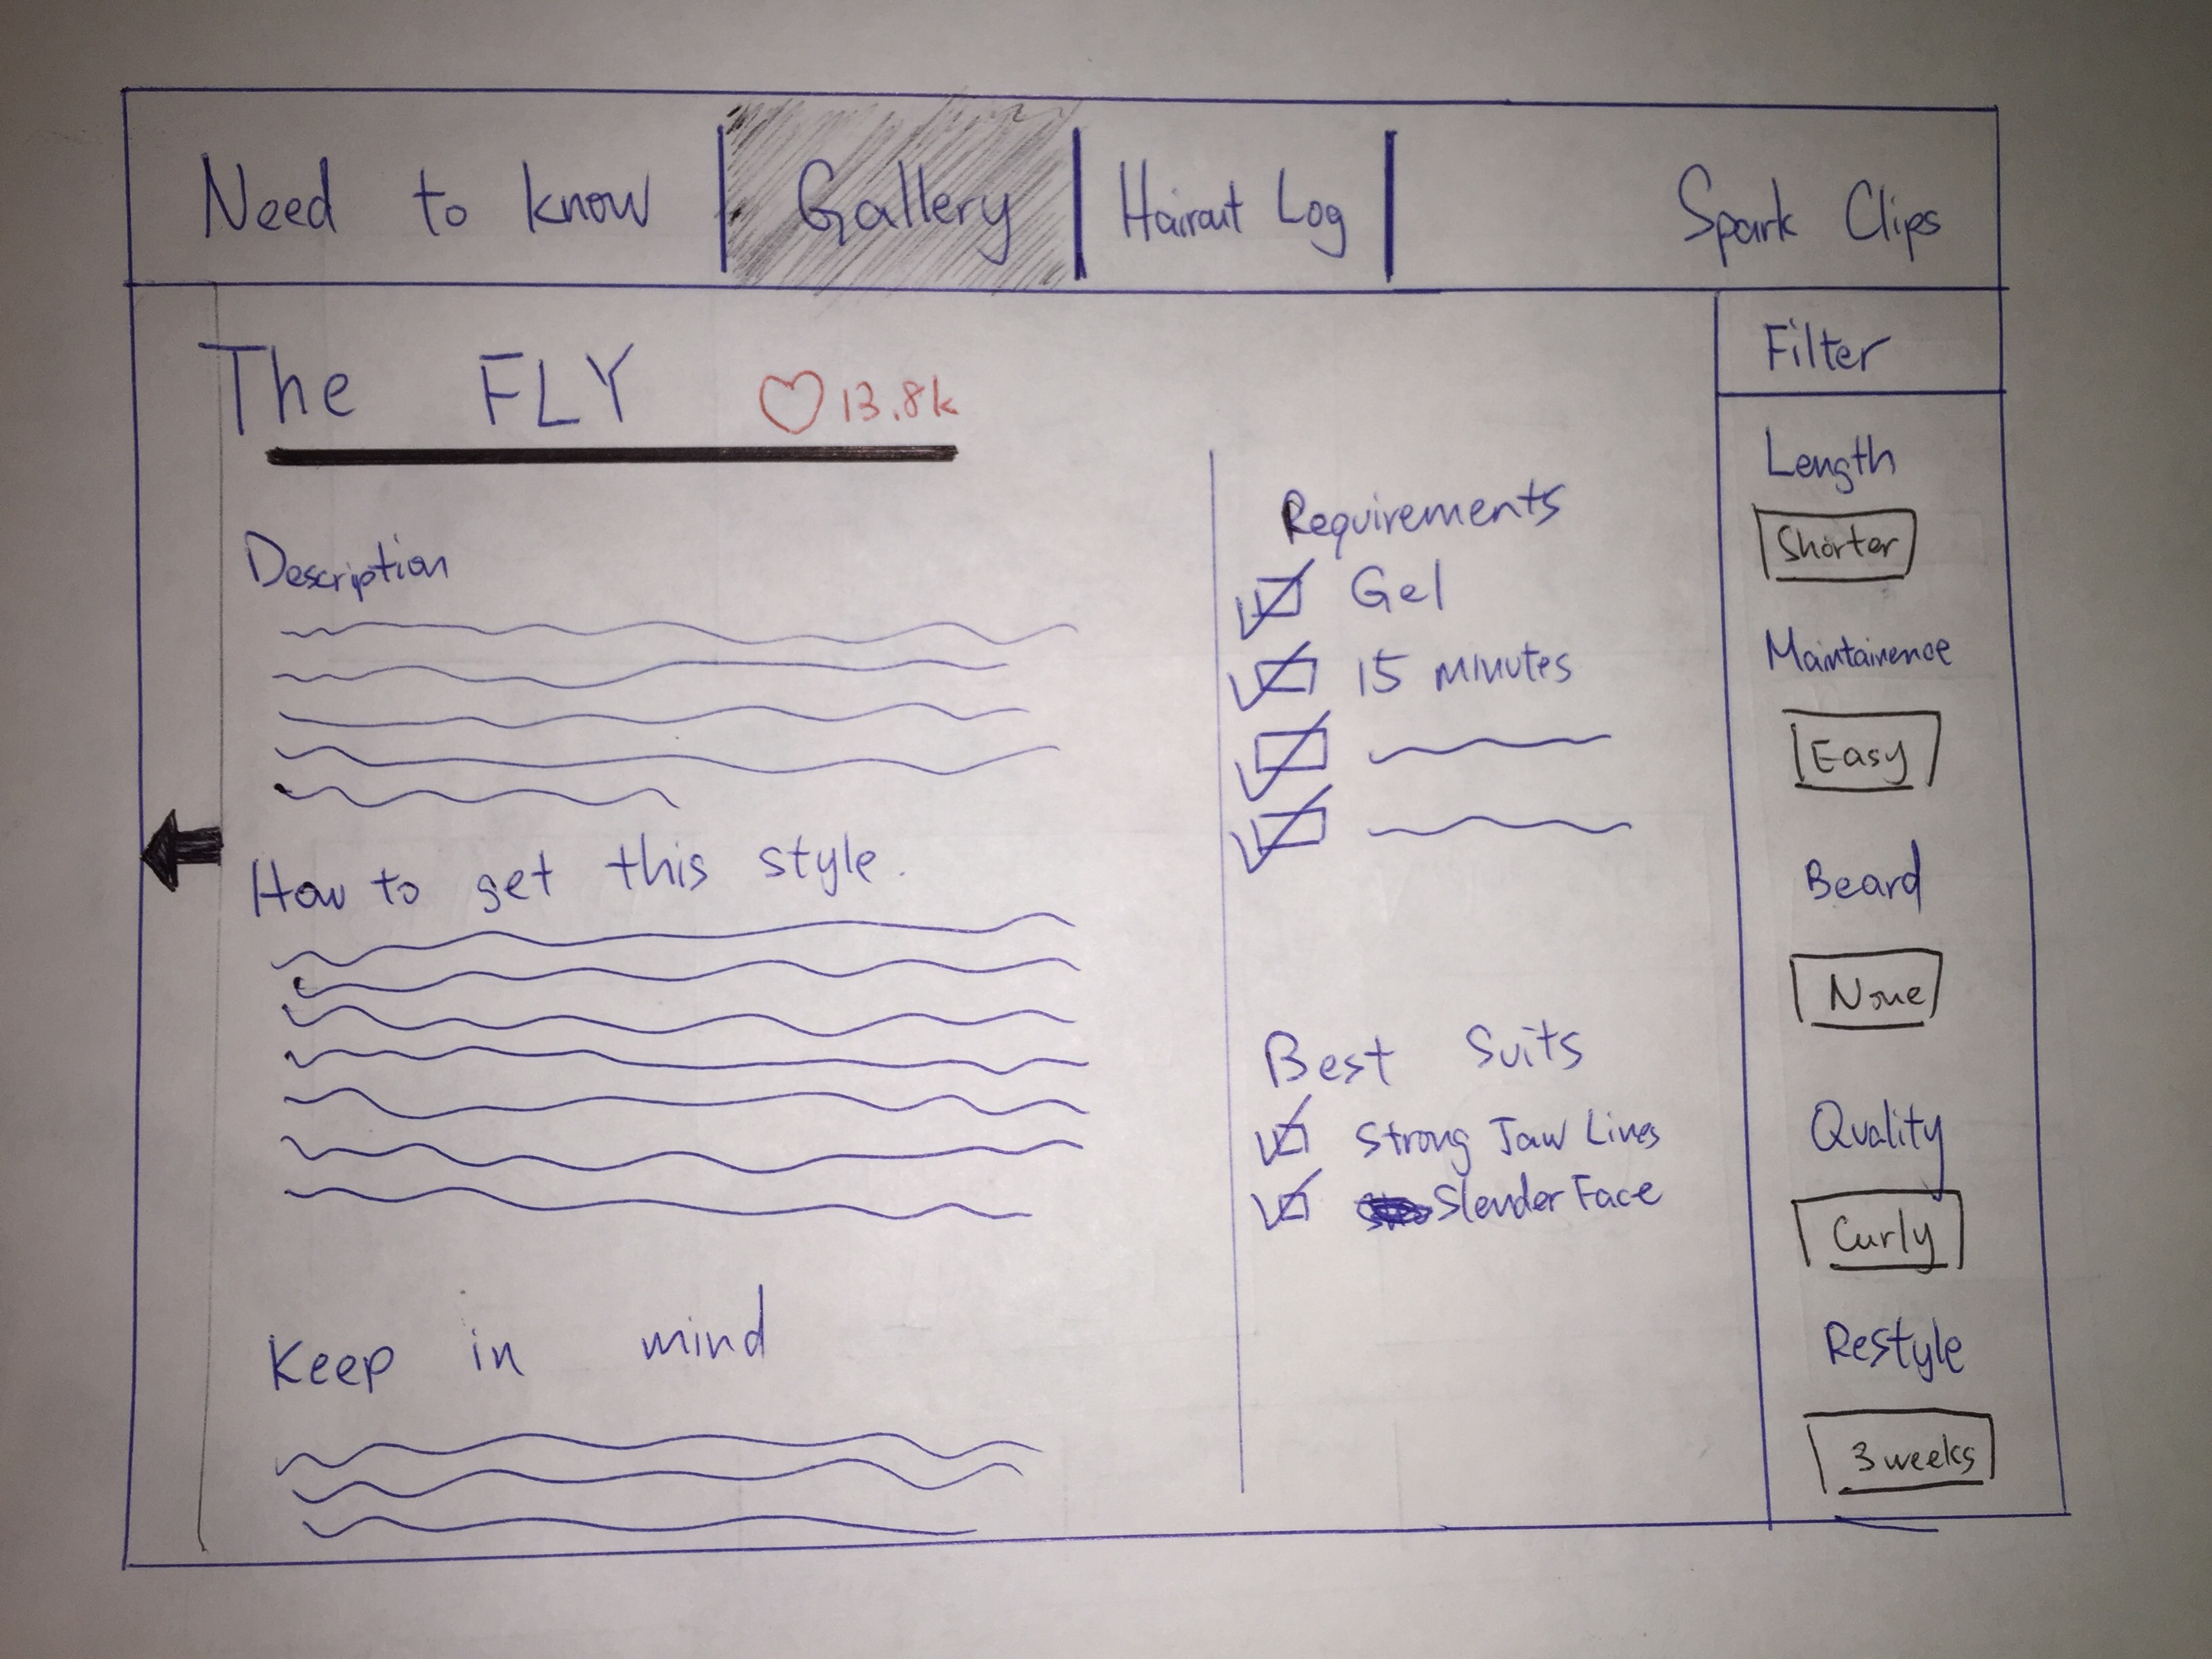 Need to know Gallery Haircut Log Spark Clips
The FLY 13.8k
Description
How to get this style.
Keep in mind
Requirements
Gel
15 minutes
Best Suits
Strong Jaw Lines
Slender Face
Filter
Length
Shorter
Maintainence
Easy
Beard
None
Quality
Curly
Restyle
3 weeks